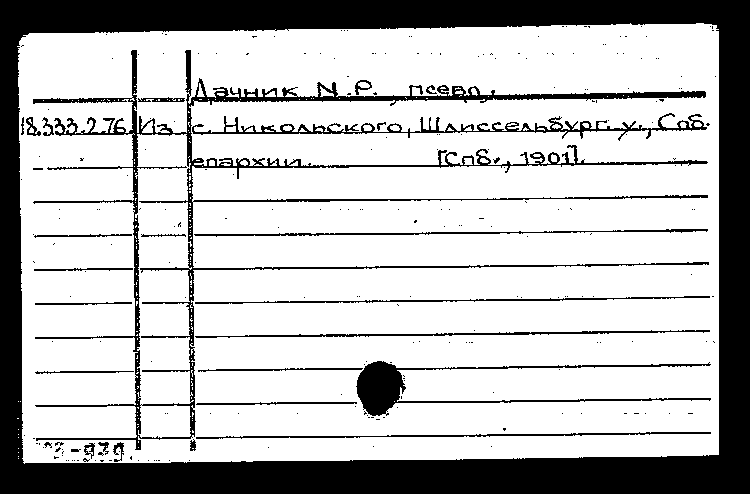 Дачник N.P., псевд.
18.333.2.76. Из с. Никольского, Шлиссельбург. у., Спб.
епархии. [Спб., 1901].
-939.